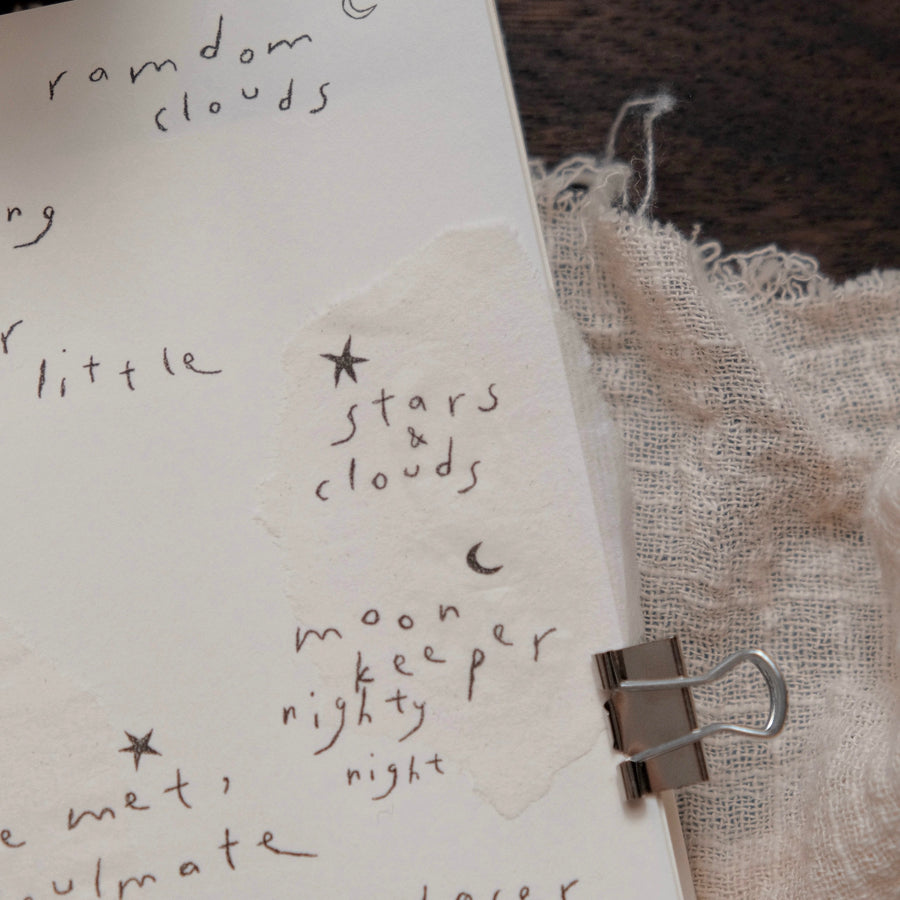 ramdom
clouds
ng
r
little
stars
&
clouds
moon
keeper
nighty
night
e met,
oulmate